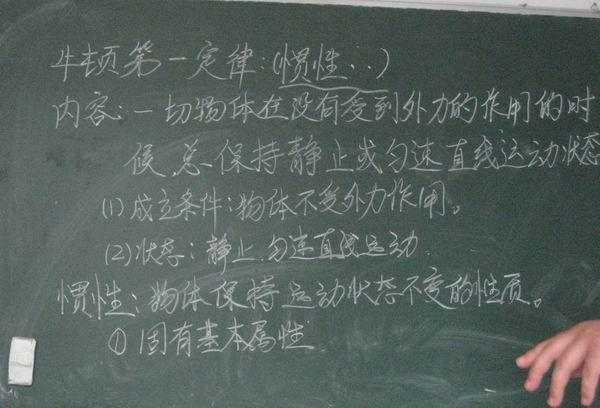 牛顿第一定律:(惯性∴)
内容:一切物体在没有受到外力的作用的时
候,总保持静止或匀速直线运动状态
(1)成立条件:物体不受外力作用。
(2)状态:静止、匀速直线运动
惯性:物体保持运动状态不变的性质。
①固有基本属性